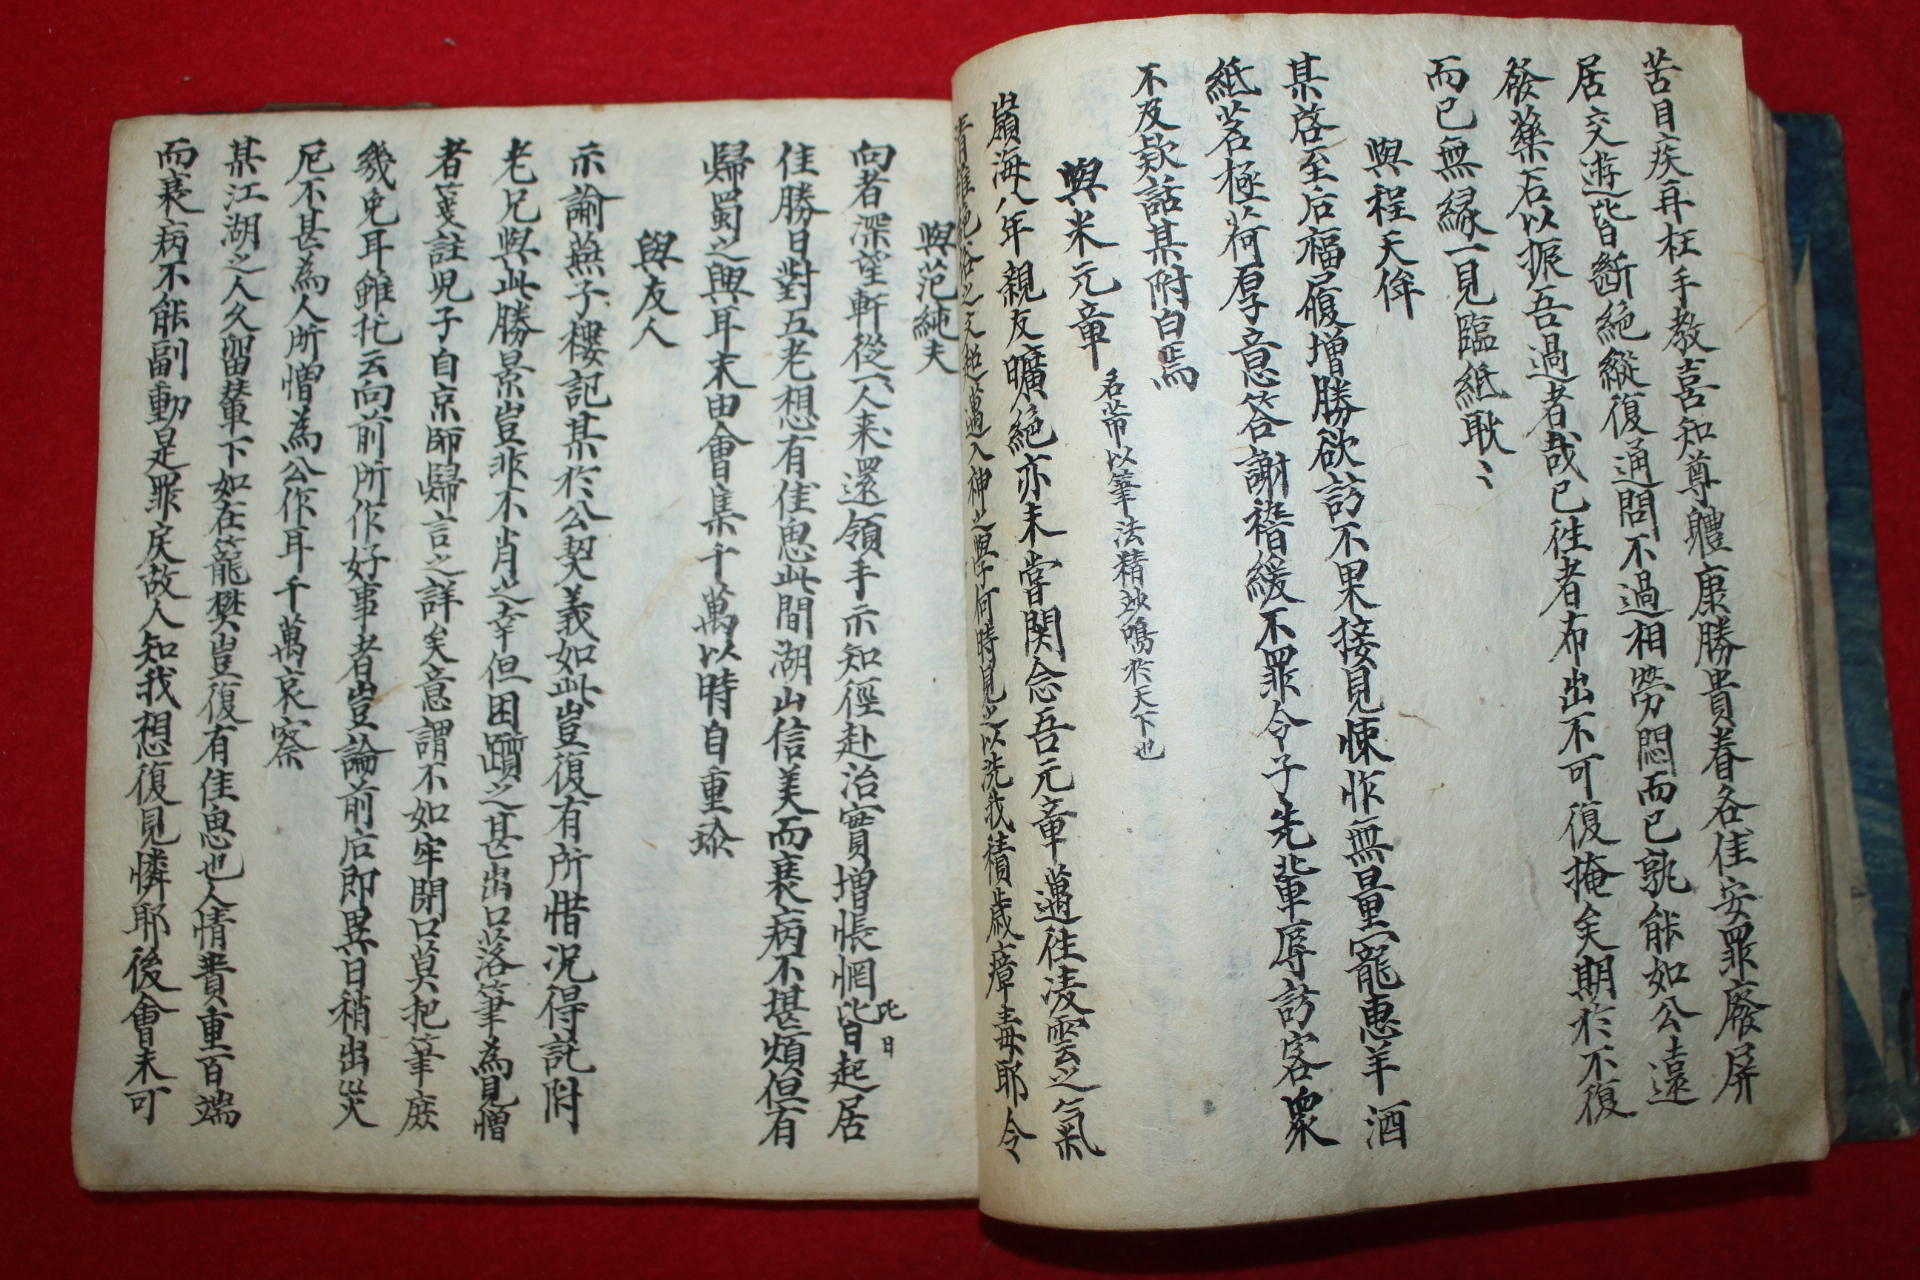 苦目疾再枉手教喜知尊體康勝貴眷各佳安罪廢屏
居交遊皆斷絶縱復通問不過相勞悶而已孰能如公遠
發藥石以振吾過者哉已往者布出不可復掩矣期於不復
而已無緣一見臨紙耿〻
與程天侔
某啓至后福履增勝欲訪不果接見悚怍無量寵惠羊酒
紙茗極荷厚意答謝稽緩不罪令子先輩辱訪客衆
不及欵話某附白焉
與米元章 名芾以筆法精妙鳴於天下也
嶺海八年親友曠絶亦未嘗関念吾元章邁往凌雲之氣
清雄絶俗之文超邁入神之字何時見之以洗我積歲瘴毒耶今
與范純夫
向者深望軒從一人来還領手示知徑赴治實增悵惘比日起居
比日
佳勝日對五老想有佳思此間湖山信美而衰病不堪煩但有
歸蜀之興耳末由會集千萬以時自重珎
與友人
示諭燕子樓記某於公契義如此豈復有所惜况得託附
老兄與此勝景豈非不肖之幸但困躓之甚出口落筆為見憎
者箋註児子自京師歸言之詳矣意謂不如牢閉口莫把筆庶
幾免耳雖托云向前所作好事者豈論前后即異日稍出災
厄不甚為人所憎為公作耳千萬哀察
某江湖之人久留輦下如在籠樊豈復有佳思也人情責重百端
而衰病不能副動是罪戾故人知我想復見憐耶後會未可